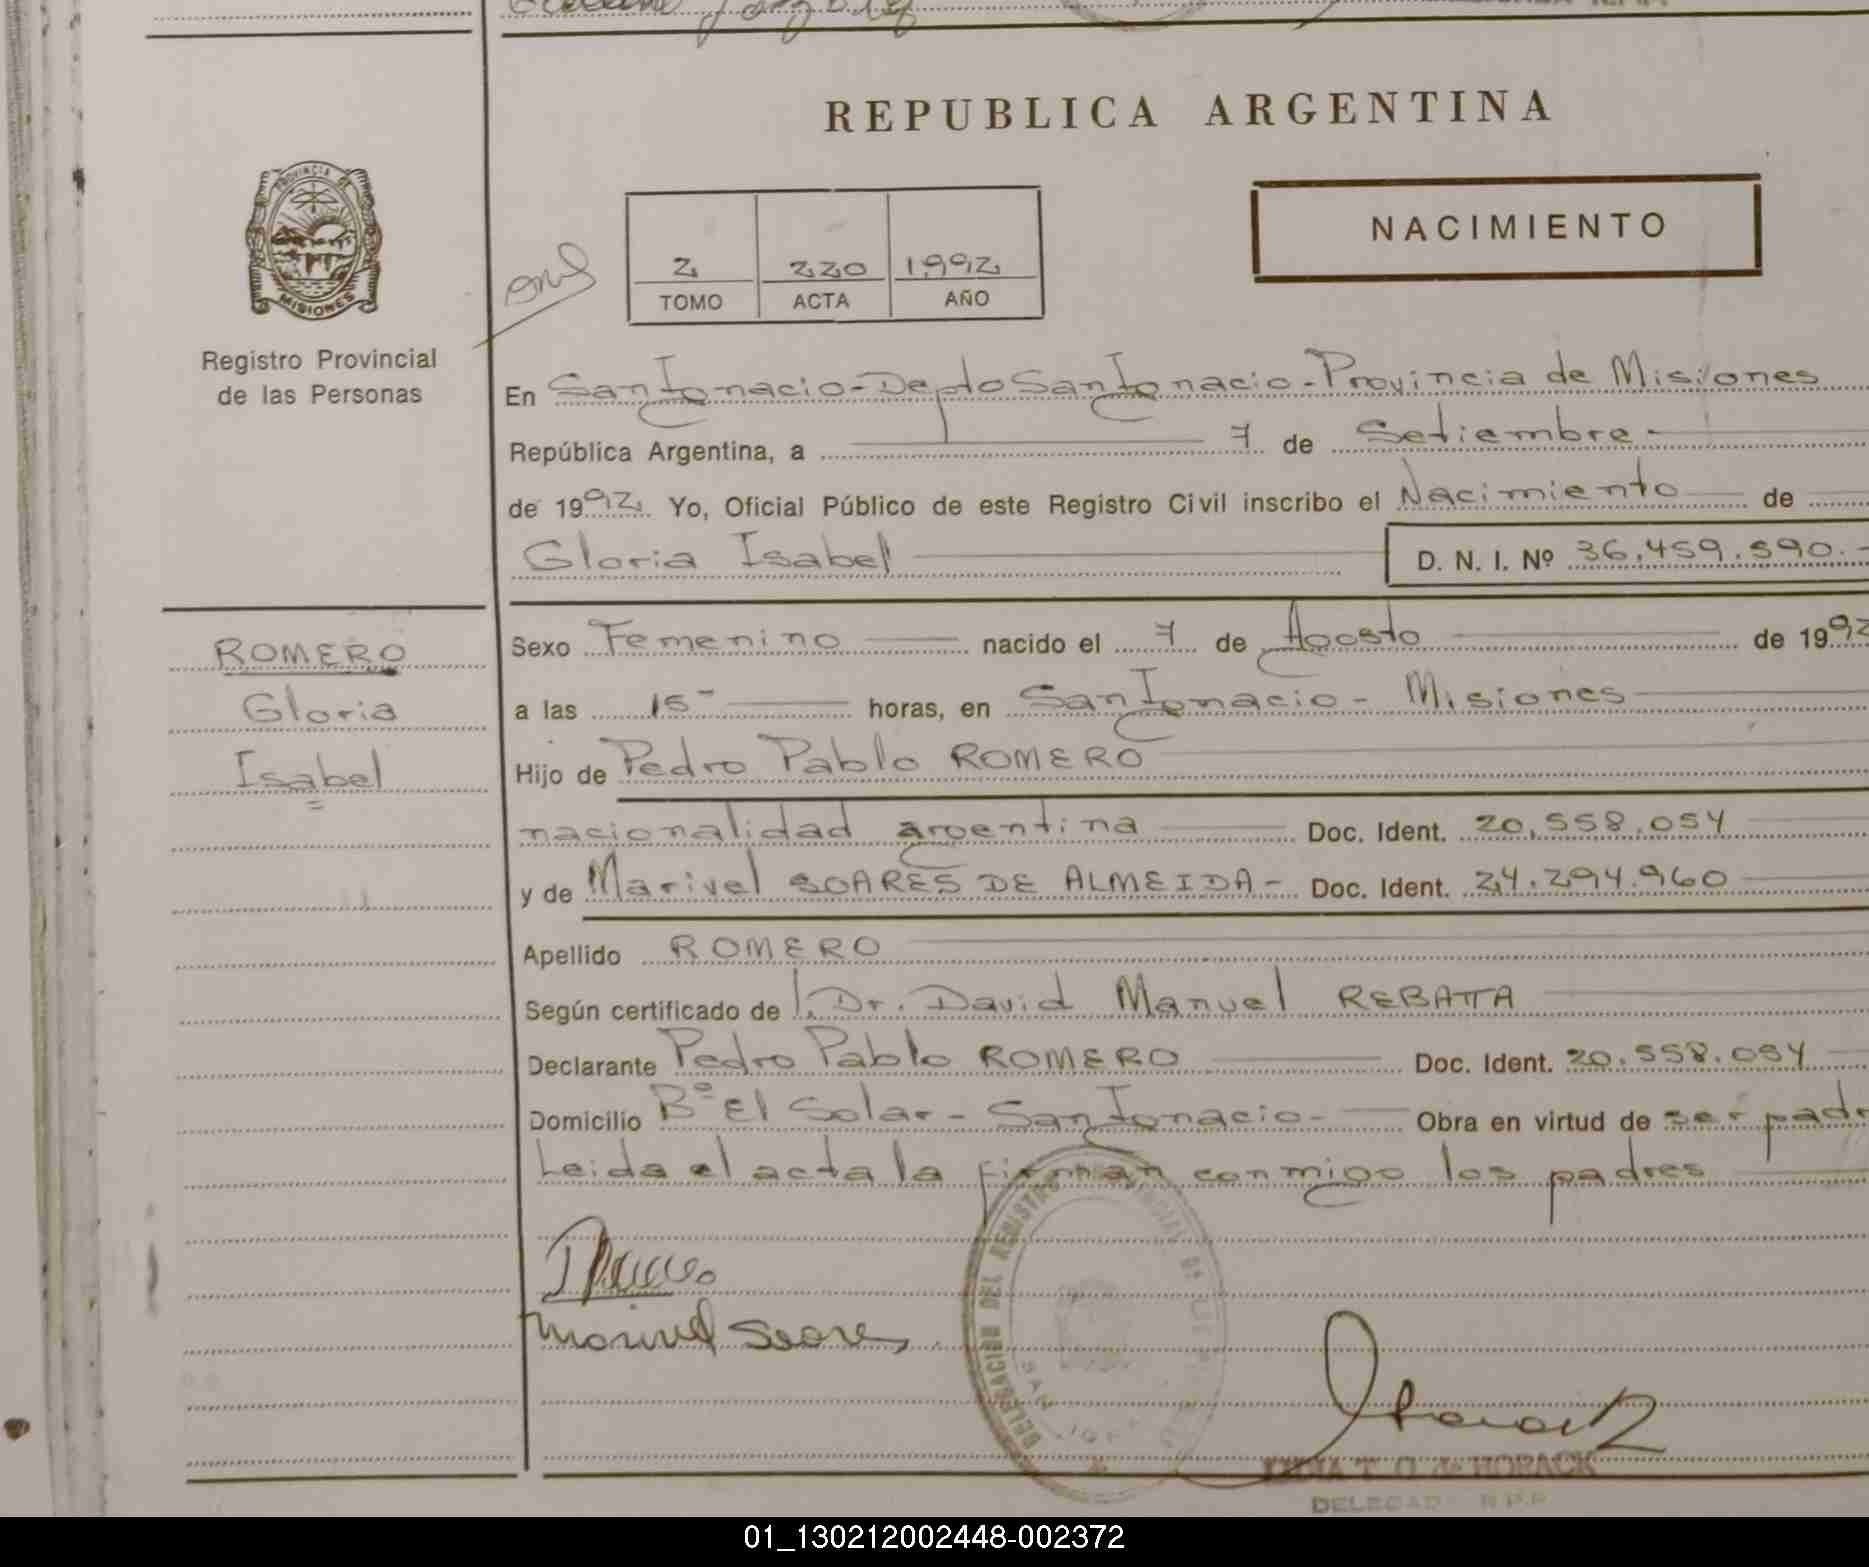 REPUBLICA ARGENTINA
PROVINCIA DE
MISIONES
Registro Provincial
de las Personas
2 220 1992
TOMO ACTA AÑO
NACIMIENTO
En San Ignacio - Depto San Ignacio - Provincia de Misiones
República Argentina, a 7 de Setiembre -
de 1992 Yo, Oficial Público de este Registro Civil inscribo el Nacimiento de
Gloria Isabel D. N. I. Nº 36.459.590.-
ROMERO
Gloria
Isabel
Sexo Femenino nacido el 7 de Agosto de 1992
a las 15- horas, en San Ignacio - Misiones
Hijo de Pedro Pablo ROMERO
nacionalidad argentina Doc. Ident. 20.558.054
y de Marivel SOARES DE ALMEIDA - Doc. Ident. 24.294.960
Apellido ROMERO
Según certificado de Dr. David Manuel REBATTA
Declarante Pedro Pablo ROMERO Doc. Ident. 20.558.054
Domicilio Bº El Solar - San Ignacio - Obra en virtud de ser padr
Leida el acta la firman conmigo los padres
Marivel Soares
DELEGACION DEL REGISTRO PROVINCIAL DE
SAN
T. O. de HORACK
DELEGAD R.P.P
01_130212002448-002372